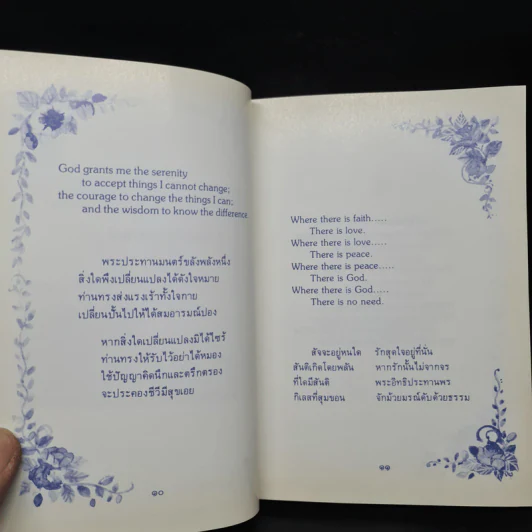 God grants me the serenity
to accept things I cannot change;
the courage to change the things I can;
and the wisdom to know the difference
พระประทานมนตร์ขลังพลังหนึ่ง
สิ่งใดพึงเปลี่ยนแปลงได้ดังใจหมาย
ท่านทรงส่งแรงเร้าทั้งใจกาย
เปลี่ยนปั้นไปให้ได้สมอารมณ์ปอง
หากสิ่งใดเปลี่ยนแปลงมิได้ไซร้
ท่านทรงให้รับไว้อย่าได้หมอง
ใช้ปัญญาคิดนึกและตรึกตรอง
จะประคองชีวีมีสุขเอย
๑๐
Where there is faith.....
There is love.
Where there is love.....
There is peace.
Where there is peace.....
There is God.
Where there is God.....
There is no need.
สัจจะอยู่หนใด รักสุดใจอยู่ที่นั่น
สันติเกิดโดยพลัน หากรักนั้นไม่จากจร
ที่ใดมีสันติ พระอิทธิประทานพร
กิเลสที่สุมขอน จักม้วยมรณ์ดับด้วยธรรม
๑๑